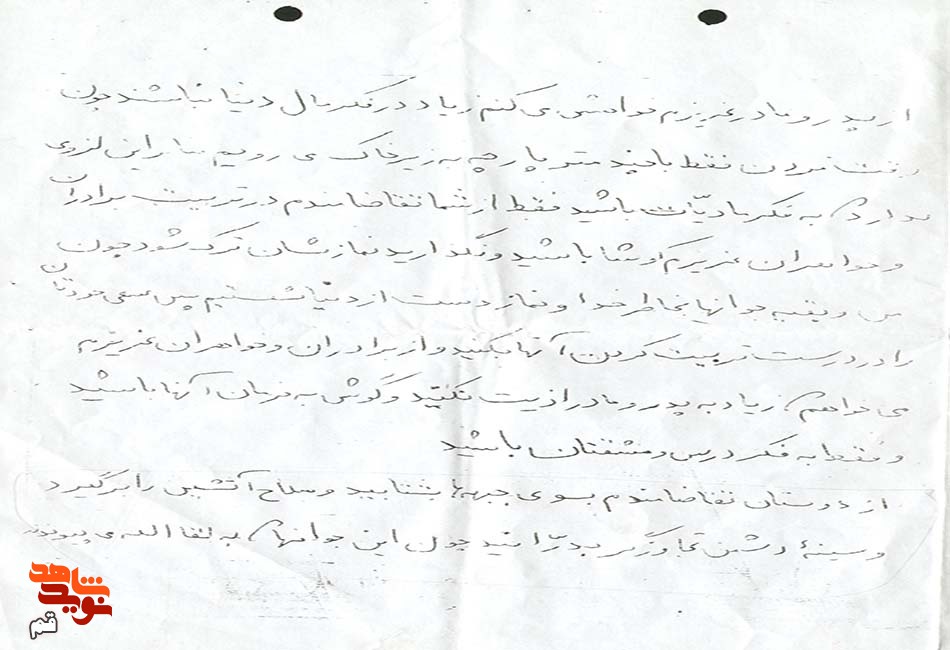 از پدر و مادر عزیزم خواهش می کنم زیاد در فکر مال دنیا نباشند چون
وقت مردن فقط با چند متر پارچه به زیر خاک می رویم بنابراین لزومی
ندارد به فکر مادیات باشید فقط از شما تقاضامندم در تربیت برادران
و خواهران عزیزم کوشا باشید و نگذارید نمازشان ترک شود چون
من و بقیه جوانها بخاطر خدا و نماز دست از دنیا شستیم پس سعی خودتان
را در درست تربیت کردن آنها بکنید و از برادران و خواهران عزیزم
می خواهم زیاد به پدر و مادر اذیت نکنید و گوش به فرمان آنها باشید
و فقط به فکر درس و مشقتان باشید
از دوستان تقاضامندم بسوی جبهه ها بشتابید و سلاح آتشین را برگیرد
و سینۀ دشمن تجاوزگر بدرّانید چون این جوانها به لقا الله می پیوندند
نوید شاهد
قم